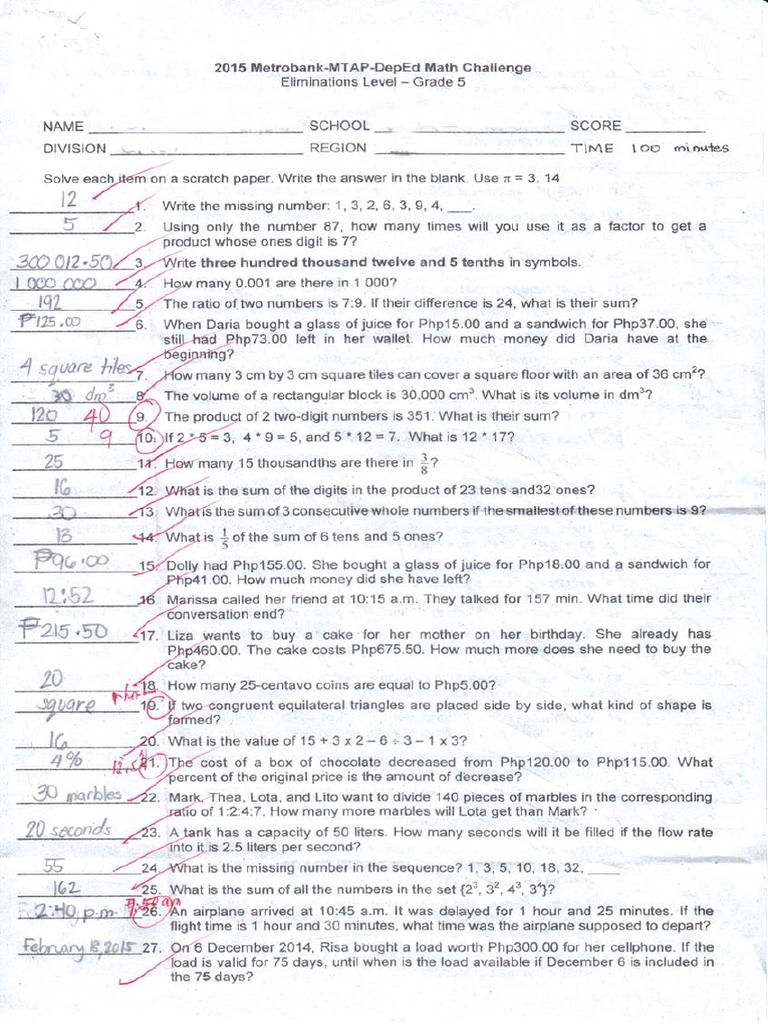 2015 Metrobank-MTAP-DepEd Math Challenge
Eliminations Level – Grade 5
NAME SCHOOL SCORE
DIVISION REGION TIME 100 minutes
Solve each item on a scratch paper. Write the answer in the blank. Use π = 3. 14
12 1. Write the missing number: 1, 3, 2, 6, 3, 9, 4, ___.
5 2. Using only the number 87, how many times will you use it as a factor to get a
product whose ones digit is 7?
300 012.50 3. Write three hundred thousand twelve and 5 tenths in symbols.
1 000 000 4. How many 0.001 are there in 1 000?
192 5. The ratio of two numbers is 7:9. If their difference is 24, what is their sum?
₱125.00 6. When Daria bought a glass of juice for Php15.00 and a sandwich for Php37.00, she
still had Php73.00 left in her wallet. How much money did Daria have at the
beginning?
4 square tiles 7. How many 3 cm by 3 cm square tiles can cover a square floor with an area of 36 cm²?
30 dm³ 8. The volume of a rectangular block is 30,000 cm³. What is its volume in dm³?
120 40 9. The product of 2 two-digit numbers is 351. What is their sum?
5 9 10. If 2 * 5 = 3, 4 * 9 = 5, and 5 * 12 = 7. What is 12 * 17?
25 11. How many 15 thousandths are there in 3/8?
16 12. What is the sum of the digits in the product of 23 tens and32 ones?
30 13. What is the sum of 3 consecutive whole numbers if the smallest of these numbers is 9?
13 14. What is 1/5 of the sum of 6 tens and 5 ones?
₱96.00 15. Dolly had Php155.00. She bought a glass of juice for Php18.00 and a sandwich for
Php41.00. How much money did she have left?
12:52 16. Marissa called her friend at 10:15 a.m. They talked for 157 min. What time did their
conversation end?
₱215.50 17. Liza wants to buy a cake for her mother on her birthday. She already has
Php460.00. The cake costs Php675.50. How much more does she need to buy the
cake?
20 18. How many 25-centavo coins are equal to Php5.00?
square 19. If two congruent equilateral triangles are placed side by side, what kind of shape is
formed?
16 20. What is the value of 15 + 3 x 2 – 6 ÷ 3 – 1 x 3?
4% 21. The cost of a box of chocolate decreased from Php120.00 to Php115.00. What
percent of the original price is the amount of decrease?
30 marbles 22. Mark, Thea, Lota, and Lito want to divide 140 pieces of marbles in the corresponding
ratio of 1:2:4:7. How many more marbles will Lota get than Mark?
20 seconds 23. A tank has a capacity of 50 liters. How many seconds will it be filled if the flow rate
into it is 2.5 liters per second?
55 24. What is the missing number in the sequence? 1, 3, 5, 10, 18, 32, ___
162 25. What is the sum of all the numbers in the set {2³, 3², 4³, 3⁴}?
2:40 p.m. 7:50 am 26. An airplane arrived at 10:45 a.m. It was delayed for 1 hour and 25 minutes. If the
flight time is 1 hour and 30 minutes, what time was the airplane supposed to depart?
February 18, 2015 27. On 6 December 2014, Risa bought a load worth Php300.00 for her cellphone. If the
load is valid for 75 days, until when is the load available if December 6 is included in
the 75 days?